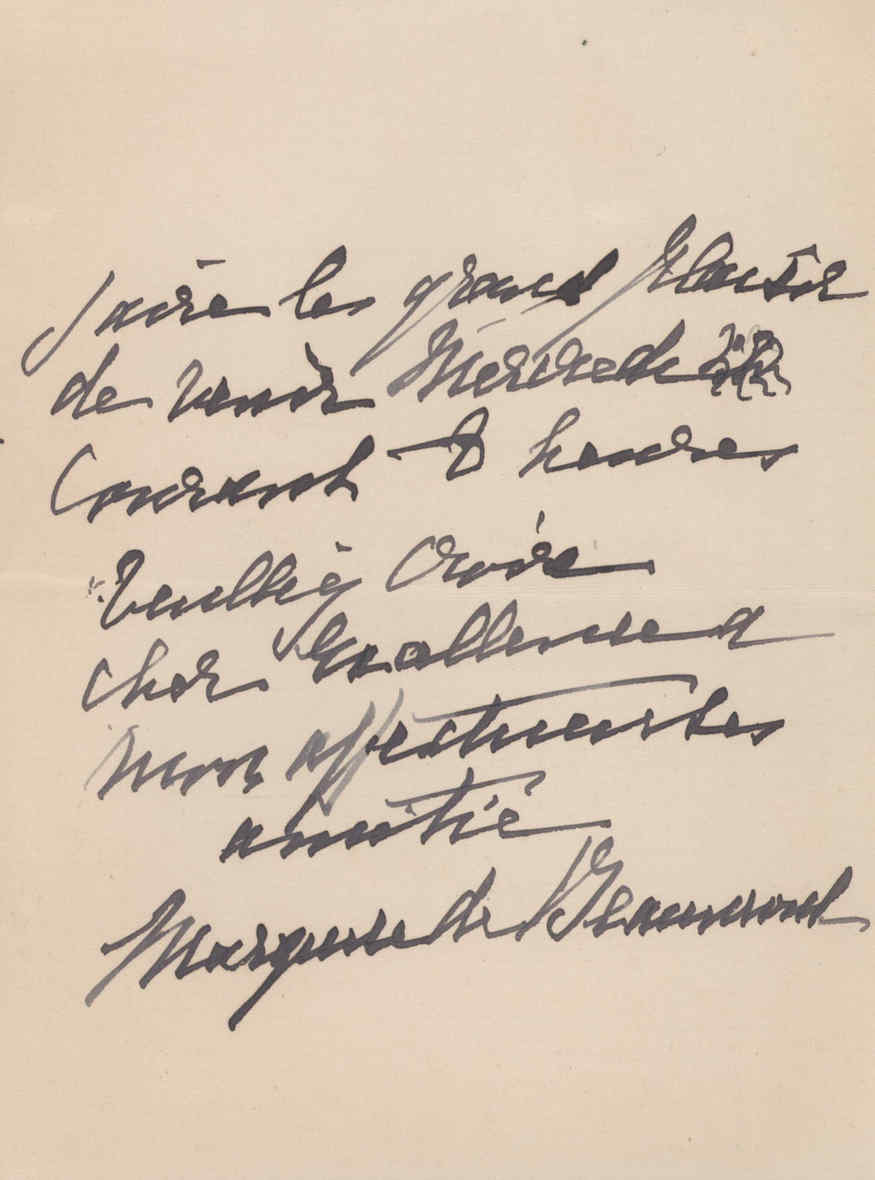 faire le grand plaisir
de venir Mercredi
Courant 8 heures
Veuillez croire
cher Excellence a
mon affectueuses
amitié
Marquise de Beaumont